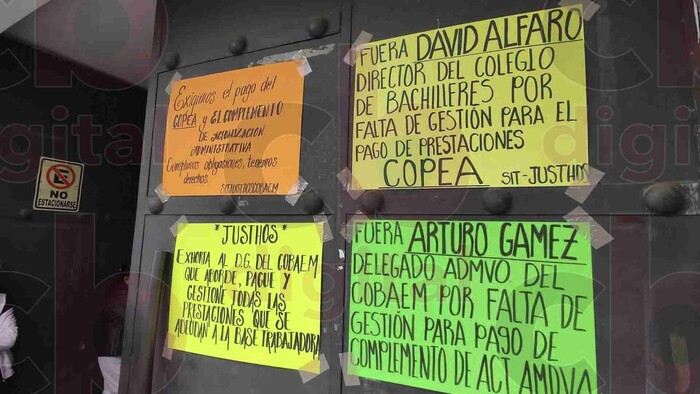 Exigimos el pago del
COPEA y El COMPLEMENTO
DE ACTUALIZACION
ADMINISTRATIVA
Cumplimos obligaciones, tenemos
derechos
SITJUSTHOSCOBAEM
FUERA DAVID ALFARO
DIRECTOR DEL COLEGIO
DE BACHILLERES POR
FALTA DE GESTIÓN PARA EL
PAGO DE PRESTACIONES
COPEA SIT-JUSTHOS
NO
ESTACIONARSE
*JUSTHOS*
EXHORTA AL D.G. DEL COBAEM
QUE ABORDE, PAGUE Y
GESTIONE TODAS LAS
PRESTACIONES QUE SE
ADEUDAN A LA BASE TRABAJADORA
FUERA ARTURO GAMEZ
DELEGADO ADMVO DEL
COBAEM POR FALTA DE
GESTIÓN PARA PAGO DE
COMPLEMENTO DE ACT AMDVA
cb
digital